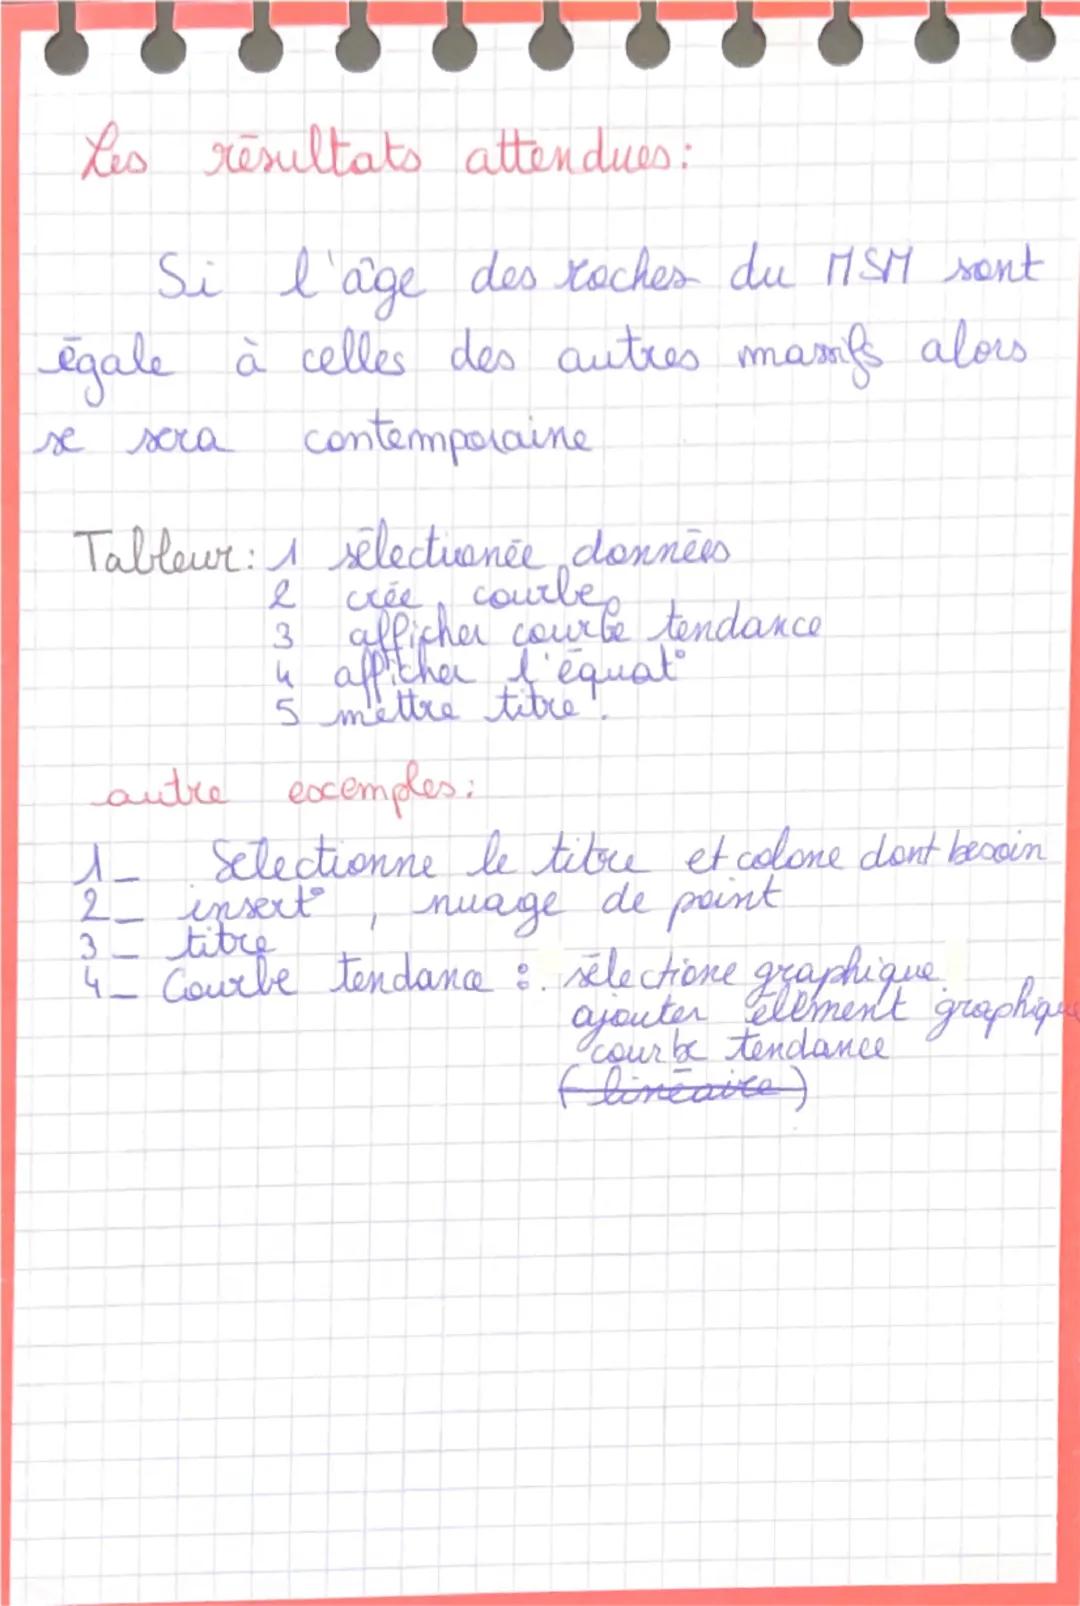 Les résultats attendues:
Si l'âge des roches du MSM sont
égale à celles des autres massifs alors
se sera contemporaine
Tableur: 1 sélectionée données
2 crée courbe
3 afficher courbe tendance
4 afficher l'équat°
5 mettre titre.
autre exemples:
1_ Sélectionne le titre et colone dont besoin
2_ insert°, nuage de point
3_ titre
4_ Courbe tendance : . sélectione graphique
ajouter élément graphique
courbe tendance
(linéaire)